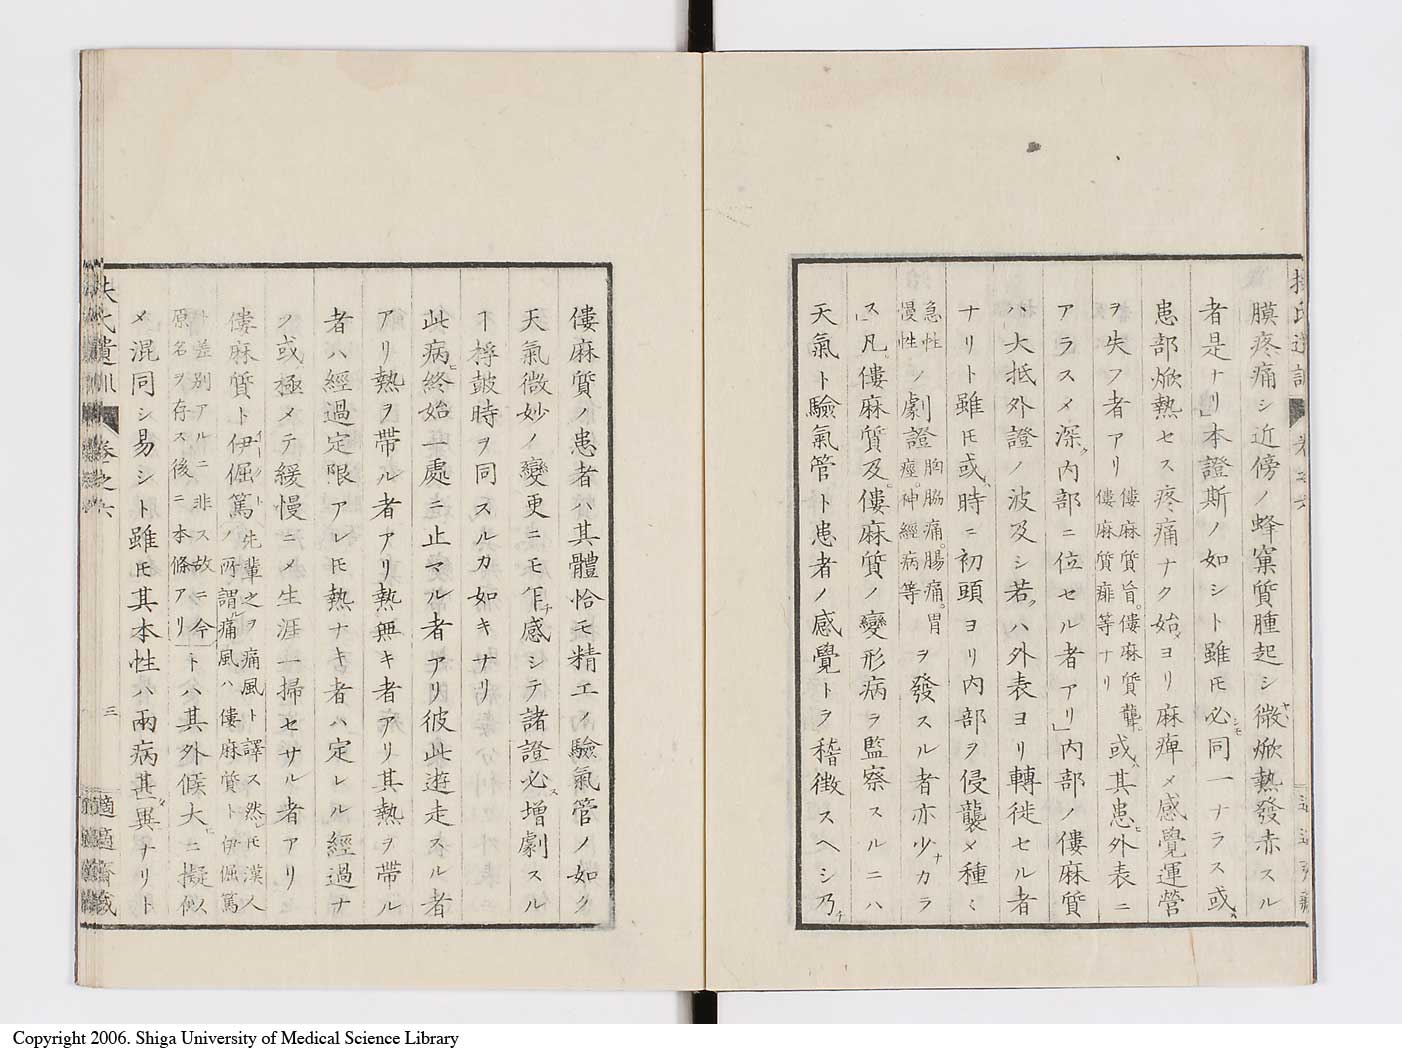 膜疼痛シ近傍ノ蜂窠質腫起シ微焮熱發赤スル
者是ナリ」本證斯ノ如シト雖モ必同一ナラス或
患部焮熱セス疼痛ナク始ヨリ麻痺メ感覺運營
ヲ失フ者アリ僂麻質盲。僂麻質聾。僂麻質痱等ナリ或其患外表ニ
アラスメ深内部ニ位セル者アリ」内部ノ僂麻質
ハ大抵外證ノ波及シ若ハ外表ヨリ轉徙セル者
ナリト雖モ或時ニ初頭ヨリ内部ヲ侵襲メ種々
急性慢性ノ劇證胸脇痛。腸痛。胃痙。神經病等ヲ發スル者亦少カラ
ス」凡僂麻質及僂麻質ノ變形病ヲ監察スルニハ
天氣ト驗氣管ト患者ノ感覺トヲ稽徴スヘシ乃
僂麻質ノ患者ハ其體恰モ精エイ驗氣管ノ如ク
天氣微妙ノ變更ニモ乍感シテ諸證必增劇スル
ヿ桴鼓時ヲ同スルカ如キナリ
此病終始一處ニ止マル者アリ彼此遊走スル者
アリ熱ヲ帶ル者アリ熱無キ者アリ其熱ヲ帶ル
者ハ經過定限アレモ熱ナキ者ハ定レル經過ナ
ク或極メテ緩慢ニメ生涯一掃セサル者アリ
僂麻質ト伊倔篤先輩之ヲ痛風ト譯ス然モ漢人ノ所謂痛風ハ僂麻質ト伊倔篤
ノ差別アルニ非ス故ニ今原名ヲ存ス後ニ本條アリトハ其外候大ニ擬似ス
メ混同シ易シト雖モ其本性ハ兩病甚異ナリト
扶氏遺訓 卷之六
三
適適齋藏
Copyright 2006. Shiga University of Medical Science Library